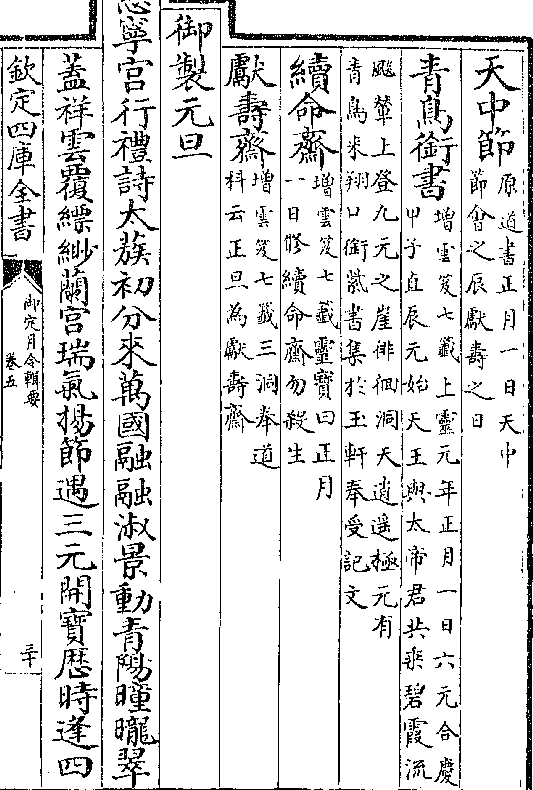 天中節原道書正月一日天中
節會之辰獻壽之日
青鳥銜書增雲笈七籤上靈元年正月一日六元合慶
甲子直辰元始天王與太帝君共乘碧霞流
飈輦上登九元之崖徘徊洞天逍遥極元有
青鳥來翔口銜紫書集於玉軒奉受記文
續命齋增雲笈七籤靈寶曰正月
一日修續命齋勿殺生
獻壽齋增雲笈七籤三洞奉道
科云正旦為獻壽齋
御製元旦
慈寧宫行禮詩太蔟初分來萬國融融淑景動青陽曈曨翠
蓋祥雲覆縹緲蘭宫瑞氣揚節遇三元開寶厯時逢四
欽定四庫全書
御定月令輯要
卷五
二十